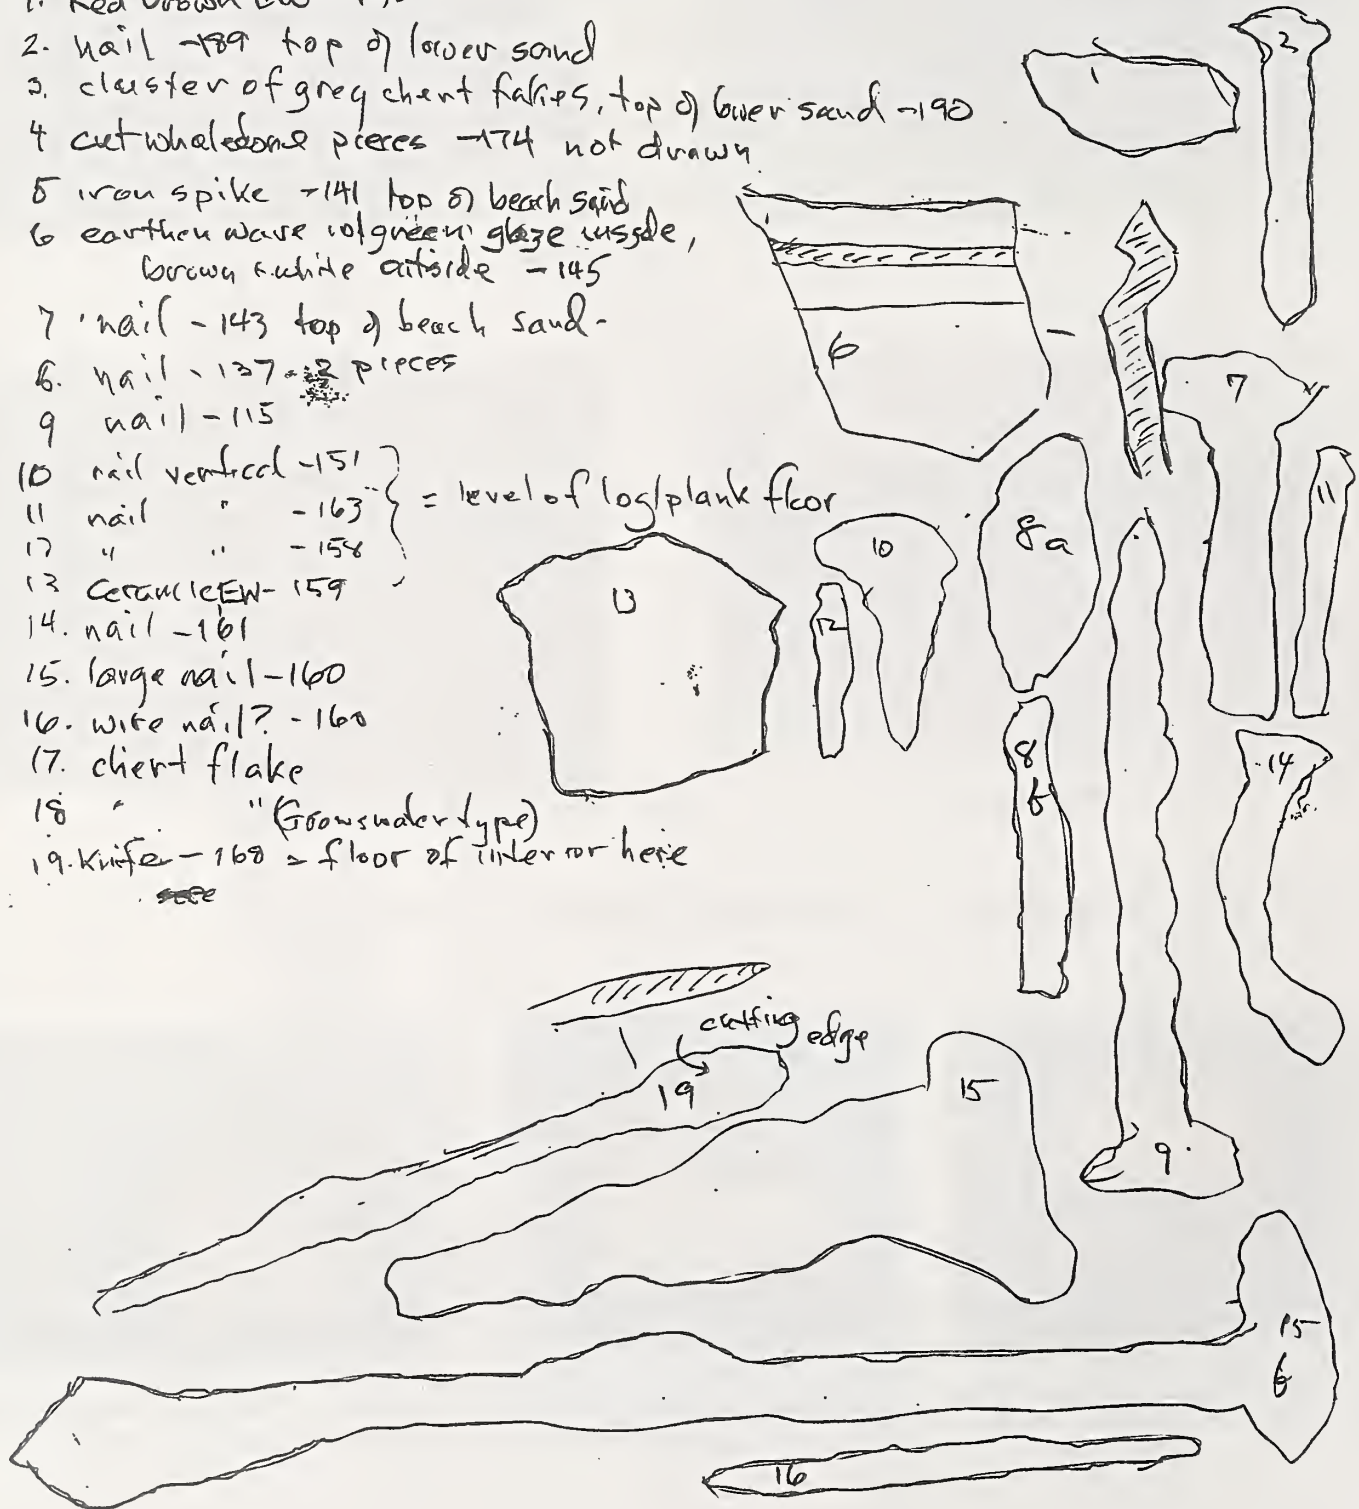 1. Red brown EW
2. nail -189 top of lower sand
3. cluster of grey chert falkes, top of lower sand -190
4 cut whalebone pieces -174 not drawn
5 iron spike -141 top of beach sand
6 earthen ware w/green glaze inside,
brown & white outside -145
7 nail -143 top of beach sand-
8. nail -137- 2 pieces
9 nail -115
10 nail vertical -151
11 nail " -163 = level of log/plank floor
12 " " -158
13 Ceramic EW- 159
14. nail -161
15. large nail -160
16. wire nail? -160
17. chert flake
18 " " (Groswater type)
19. Knife -168 = floor of interior here
1
2
6
7
11
8a
10
12
13
8
b
14
cutting edge
19
15
9
15
b
16